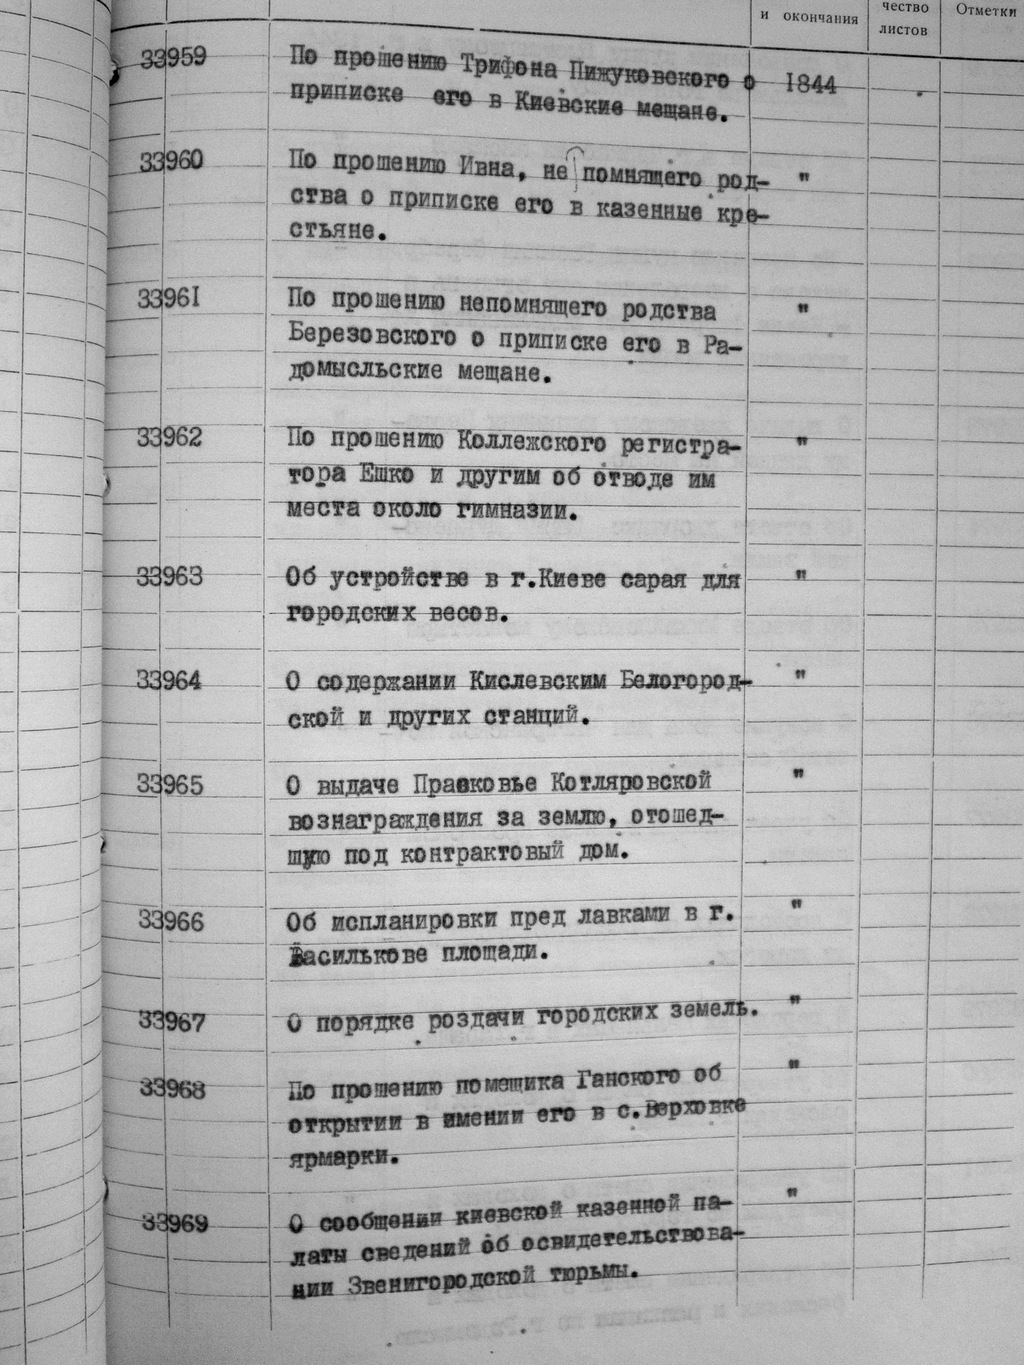 и окончания
чество листов
Отметки
33959 По прошению Трифона Пижуковского о 1844
приписке его в Киевские мещане.
33960 По прошению Ивна, не помнящего род- "
ства о приписке его в казенные кре-
стьяне.
33961 По прошению непомнящего родства "
Березовского о приписке его в Ра-
домысльские мещане.
33962 По прошению Коллежского регистра- "
тора Ешко и другим об отводе им
места около гимназии.
33963 Об устройстве в г.Киеве сарая для "
городских весов.
33964 О содержании Кислевским Белогород- "
ской и других станций.
33965 О выдаче Прасковье Котляровской "
вознаграждения за землю, отошед-
шую под контрактовый дом.
33966 Об испланировки пред лавками в г. "
Василькове площади.
33967 О порядке роздачи городских земель. "
33968 По прошению помещика Ганского об "
открытии в имении его в с.Верховке
ярмарки.
33969 О сообщении киевской казенной па- "
латы сведений об освидетельствова-
нии Звенигородской тюрьмы.